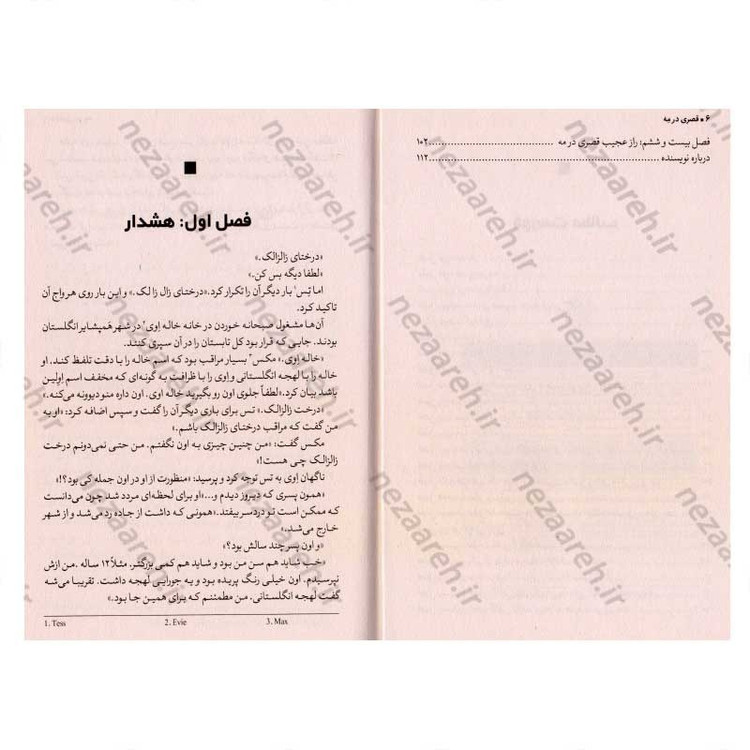 ۶ • قصری در مه
فصل بیست و ششم: راز عجیب قصری در مه ........................ ۱۰۲
درباره نویسنده ........................ ۱۱۲
فصل اول: هشدار
«درختای زالزالک.»
«لطفا دیگه بس کن.»
اما تِس¹ بار دیگر آن را تکرار کرد. «درختای زال زا لک.» و این بار روی هر واج آن
تاکید کرد.
آن‌ها مشغول صبحانه خوردن در خانه خاله اِوی² در شهر هَمپشایر انگلستان
بودند. جایی که قرار بود کل تابستان را در آن سپری کنند.
«خاله اِوی.» مکس³ بسیار مراقب بود که اسم خاله را با دقت تلفظ کند. او
خاله را با لهجه انگلستانی و اِوی را با ظرافت به گونه‌ای که مخفف اسم اِولین
باشد بیان کرد. «لطفاً جلوی اون رو بگیرید خاله اوی. اون داره منو دیوونه می‌کنه.»
«درخت زالزالک.» تس برای باری دیگر آن را گفت و سپس اضافه کرد: «او به
من گفت که مراقب درختای زالزالک باشم.»
مکس گفت: «من چنین چیزی به اون نگفتم. من حتی نمی‌دونم درخت
زالزالک چی هست!»
ناگهان اِوی به تس توجه کرد و پرسید: «منظورت از او در اون جمله کی بود؟!»
«همون پسری که دیروز دیدم و...» او برای لحظه‌ای مردد شد چون می‌دانست
که ممکن است تو دردسر بیفتد. «همونی که داشت از جاده رد می‌شد و از شهر
خارج می‌شد.»
«و اون پسر چند سالش بود؟»
«خب شاید هم سن من بود و شاید هم کمی بزرگتر. مثلاً ۱۲ ساله. من ازش
نپرسیدم. اون خیلی رنگ پریده بود و یه جورایی لهجه داشت. تقریبا می‌شه
گفت لهجه انگلستانی. من مطمئنم که برای همین جا بود.»
1. Tess 2. Evie 3. Max
nezaareh.ir